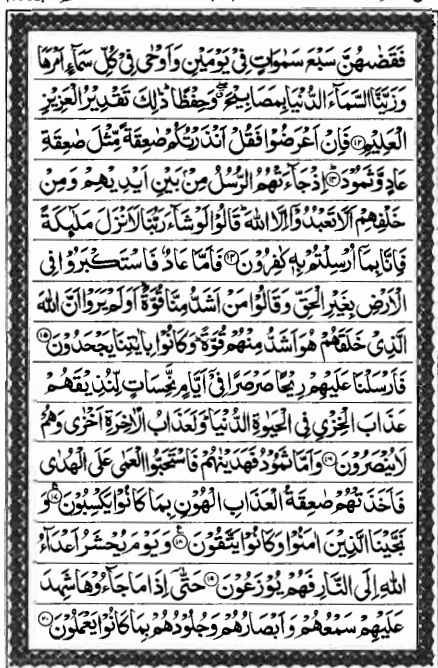 فَقَضٰىهُنَّ سَبْعَ سَمٰوَاتٍ فِیْ یَوْمَیْنِ وَ اَوْحٰی فِیْ كُلِّ سَمَآءٍ اَمْرَهَا
وَ زَیَّنَّا السَّمَآءَ الدُّنْیَا بِمَصَابِیْحَ ۖۗ وَ حِفْظًا ؕ ذٰلِكَ تَقْدِیْرُ الْعَزِیْزِ
الْعَلِیْمِ ﴿۱۲﴾ فَاِنْ اَعْرَضُوْا فَقُلْ اَنْذَرْتُكُمْ صٰعِقَةً مِّثْلَ صٰعِقَةِ
عَادٍ وَّ ثَمُوْدَ ﴿۱۳﴾ اِذْ جَآءَتْهُمُ الرُّسُلُ مِنْۢ بَیْنِ اَیْدِیْهِمْ وَ مِنْ
خَلْفِهِمْ اَلَّا تَعْبُدُوْۤا اِلَّا اللّٰهَ ؕ قَالُوْا لَوْ شَآءَ رَبُّنَا لَاَنْزَلَ مَلٰٓىِٕكَةً
فَاِنَّا بِمَاۤ اُرْسِلْتُمْ بِهٖ كٰفِرُوْنَ ﴿۱۴﴾ فَاَمَّا عَادٌ فَاسْتَكْبَرُوْا فِی
الْاَرْضِ بِغَیْرِ الْحَقِّ وَ قَالُوْا مَنْ اَشَدُّ مِنَّا قُوَّةً ؕ اَوَ لَمْ یَرَوْا اَنَّ اللّٰهَ
الَّذِیْ خَلَقَهُمْ هُوَ اَشَدُّ مِنْهُمْ قُوَّةً ؕ وَ كَانُوْا بِاٰیٰتِنَا یَجْحَدُوْنَ ﴿۱۵﴾
فَاَرْسَلْنَا عَلَیْهِمْ رِیْحًا صَرْصَرًا فِیْۤ اَیَّامٍ نَّحِسَاتٍ لِّنُذِیْقَهُمْ
عَذَابَ الْخِزْیِ فِی الْحَیٰوةِ الدُّنْیَا ؕ وَ لَعَذَابُ الْاٰخِرَةِ اَخْزٰی وَ هُمْ
لَا یُنْصَرُوْنَ ﴿۱۶﴾ وَ اَمَّا ثَمُوْدُ فَهَدَیْنٰهُمْ فَاسْتَحَبُّوا الْعَمٰی عَلَی الْهُدٰی
فَاَخَذَتْهُمْ صٰعِقَةُ الْعَذَابِ الْهُوْنِ بِمَا كَانُوْا یَكْسِبُوْنَ ﴿۱۷﴾ وَ
نَجَّیْنَا الَّذِیْنَ اٰمَنُوْا وَ كَانُوْا یَتَّقُوْنَ ﴿۱۸﴾ وَ یَوْمَ یُحْشَرُ اَعْدَآءُ
اللّٰهِ اِلَی النَّارِ فَهُمْ یُوْزَعُوْنَ ﴿۱۹﴾ حَتّٰۤی اِذَا مَا جَآءُوْهَا شَهِدَ
عَلَیْهِمْ سَمْعُهُمْ وَ اَبْصَارُهُمْ وَ جُلُوْدُهُمْ بِمَا كَانُوْا یَعْمَلُوْنَ ﴿۲۰﴾